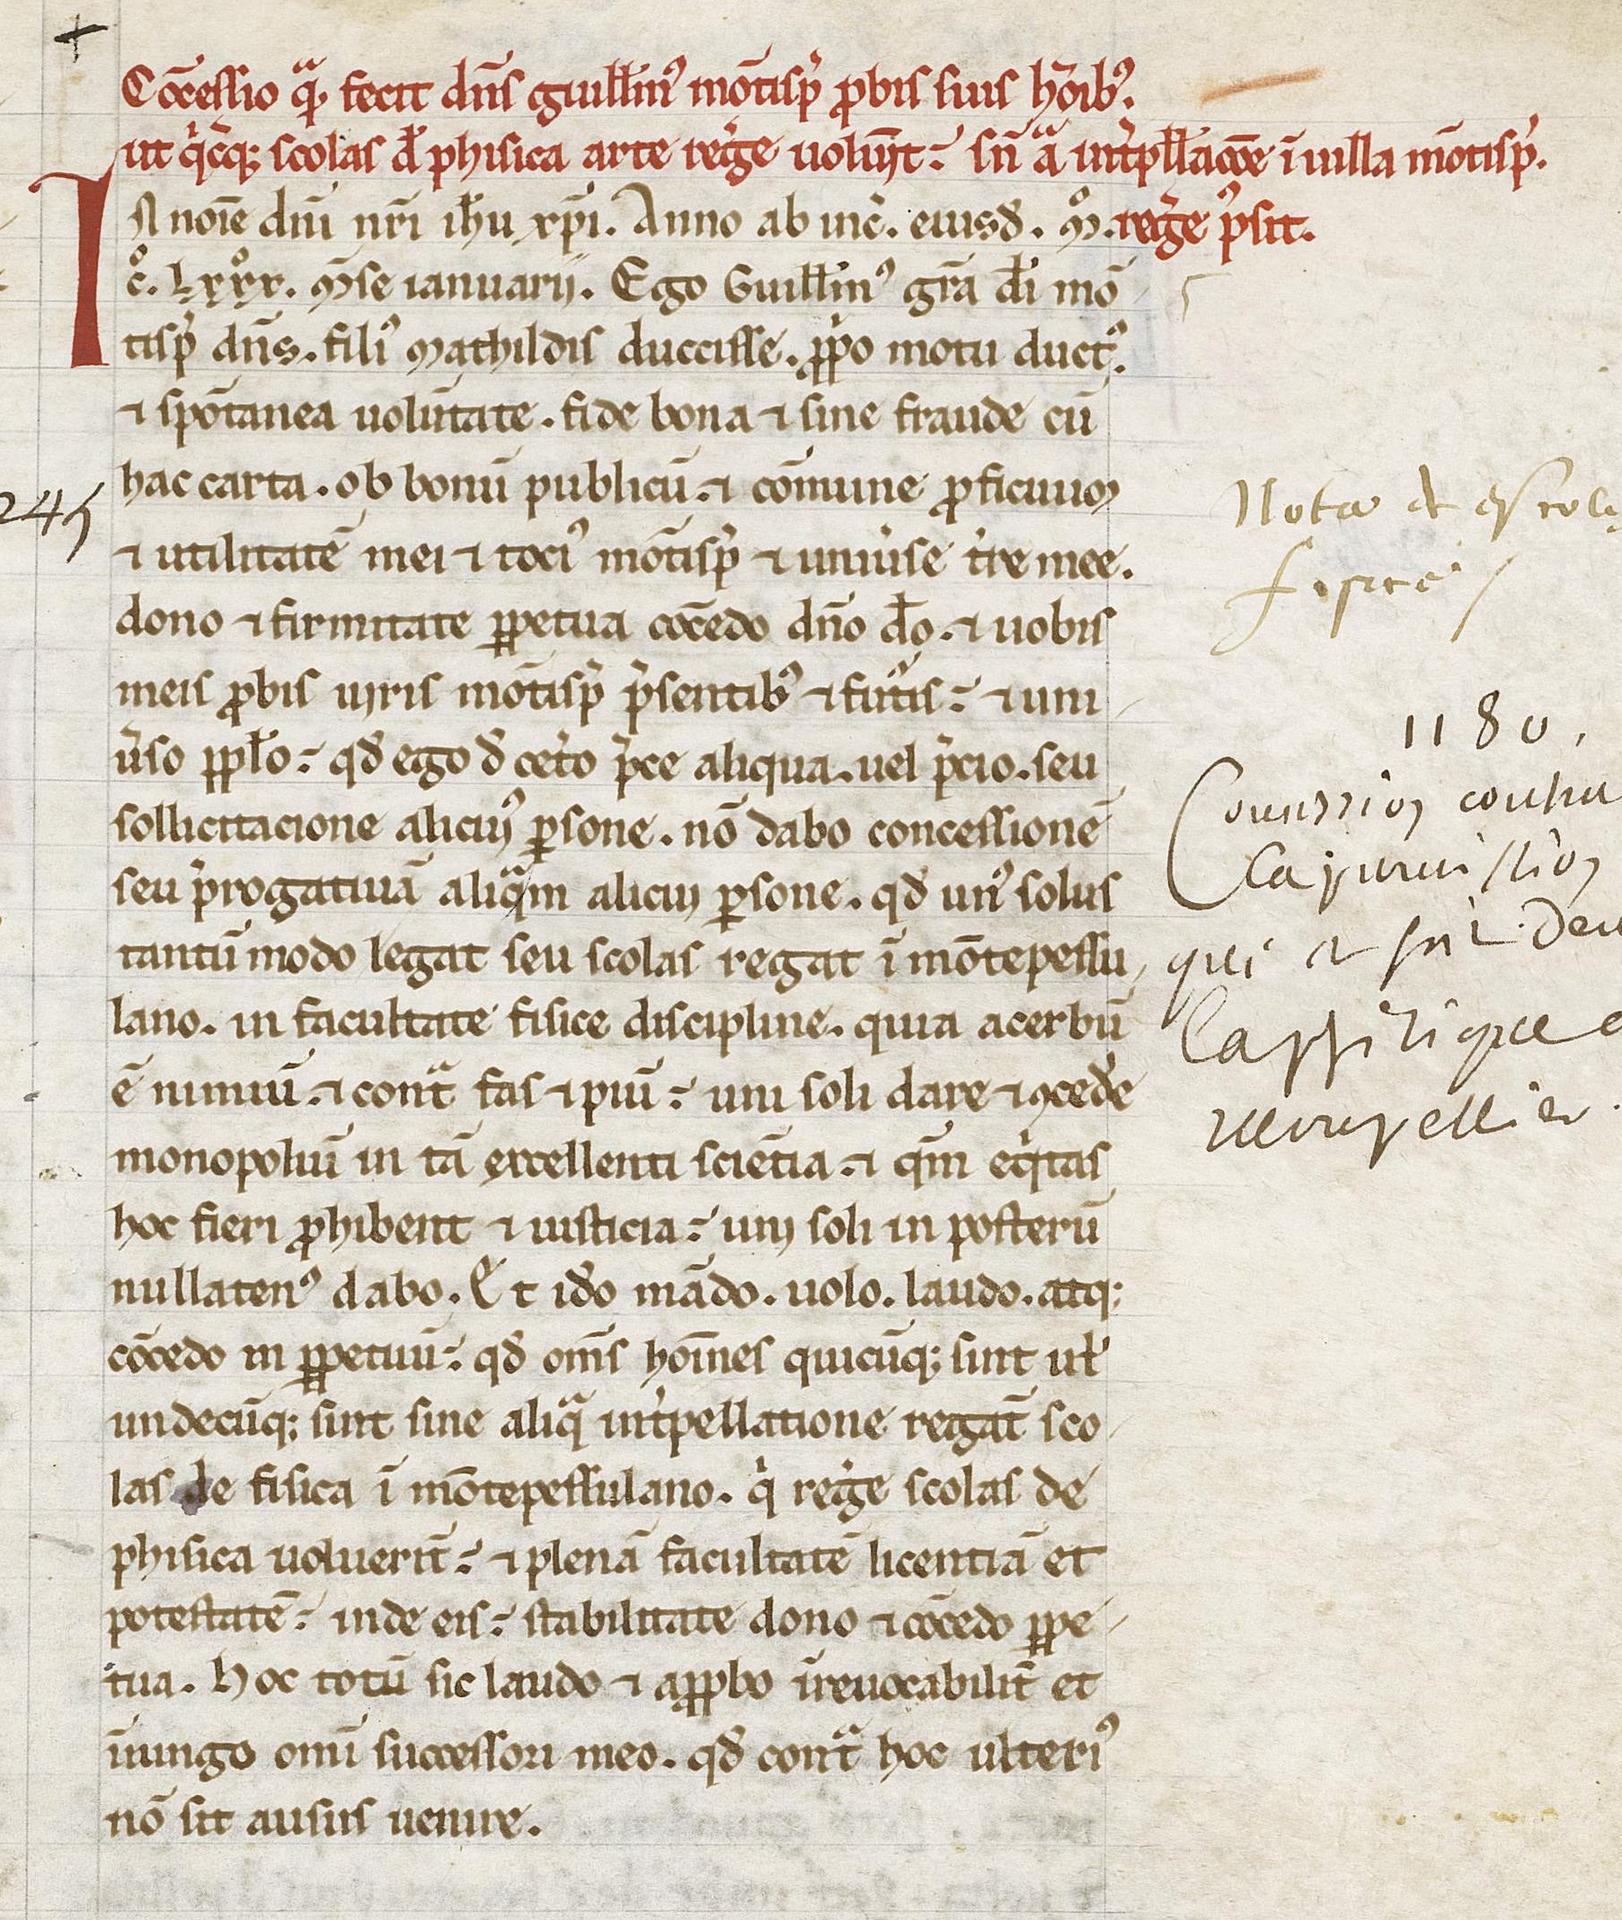 Co̅cessio qᷓ fecit dn̅s guill̅mꝰ mo̅tispͥ ꝓbis suis ho̅ibꝫ.
ut qͥcūqꝫ scolas d̅ phisica arte reg̓e uolu̅it: sn̅ aᷓ int̓pll̅ac̅oe ı̅ uilla mo̅tispͥ.
reg̓e p̓sit.
IN no̅ie dn̅i nr̅i ih̅u xp̅i. Anno ab inc̓. eiusd̅. mͦ.
cͦ. lxxxͦ. m̅se ianuarii. Ego Guill̅mꝰ gr̅a dī mo̅
tispͥ dn̅s. filiꝰ Mathildis duccisse. ꝓpͥo motu ductꝰ.
⁊ spo̅tanea uolu̅tate. fide bona ⁊ sine fraude cu̅
hac carta. ob bonu̅ publicu̅. ⁊ co̅mune ꝓficuuꝫ
⁊ utilitate̅ mei ⁊ tociꝰ mo̅tispͥ ⁊ uniu̓se t̓re mee.
dono ⁊ firmitate ꝑpetua co̅cedo dn̅o d̅o. ⁊ uobis
meis ꝓbis uiris mo̅tispͥ p̓sentibꝰ ⁊ futᷓis: ⁊ uni
u̓so ppl̅o: qd̅ ego d̅ cet̓o p̓ce aliqua. uel p̓cio. seu
sollicitacione aliciuꝰ ꝑsone. no̅ dabo concessione̅
seu p̓rogatiua̅ aliqᷓm alicui ꝑsone. qd̅ unꝰ solus
tantu̅ modo legat seu scolas regat ı̅ mo̅tepessu
lano. in facultate fisice discipline. quia acerbu̅
e̅ nimiu̅. ⁊ contᷓ fas ⁊ piu̅: uni soli dare ⁊ ꝯced̓e
monopoliu̅ in ta̅ excellenti scie̅tia. ⁊ qm̅ eqͥtas
hoc fieri ꝓhibent ⁊ iusticia: uni soli in posteru̅
nullatenꝰ dabo. Et id̅o ma̅do. uolo. laudo. atqꝫ
co̅cedo in ꝑpetuu̅: qd̅ om̅s ho̅ines quicu̅qꝫ sint ul̅
undecu̅qꝫ sint sine aliqᷓ int̓pellatione rega̅t sco
las de fisica ı̅ mo̅tepessulano. qͥ reg̓e scolas de
phisica uolueri̅t: ⁊ plena̅ facultate̅ licentia̅ et
potestate̅: inde eis: stabilitate dono ⁊ co̅cedo ꝑpe
tua. Hoc totu̅ sic laudo ⁊ apꝓbo ı̅reuocabilit̓ et
ı̅iungo om̅i successori meo. qd̅ contᷓ hoc ulteriꝰ
no̅ sit ausus uenire.
245
Nota
1180.
qui